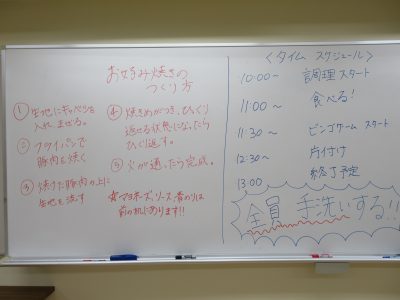 お好み焼きの
つくり方
① 生地にキャベツを
入れ、まぜる。
② フライパンで
豚肉を焼く
③ 焼けた豚肉の上に
生地を流す
④ 焼きめがつき、ひっくり
返せる状態になったら
ひっくり返す。
⑤ 火が通ったら完成。
☆マヨネーズ、ソース、青のりは
前の机にあります!!
＜タイム スケジュール＞
10:00～ 調理スタート
11:00～ 食べる!
11:30～ ビンゴゲーム スタート
12:30～ 片付け
13:00 終了予定
全員 手洗いする!!